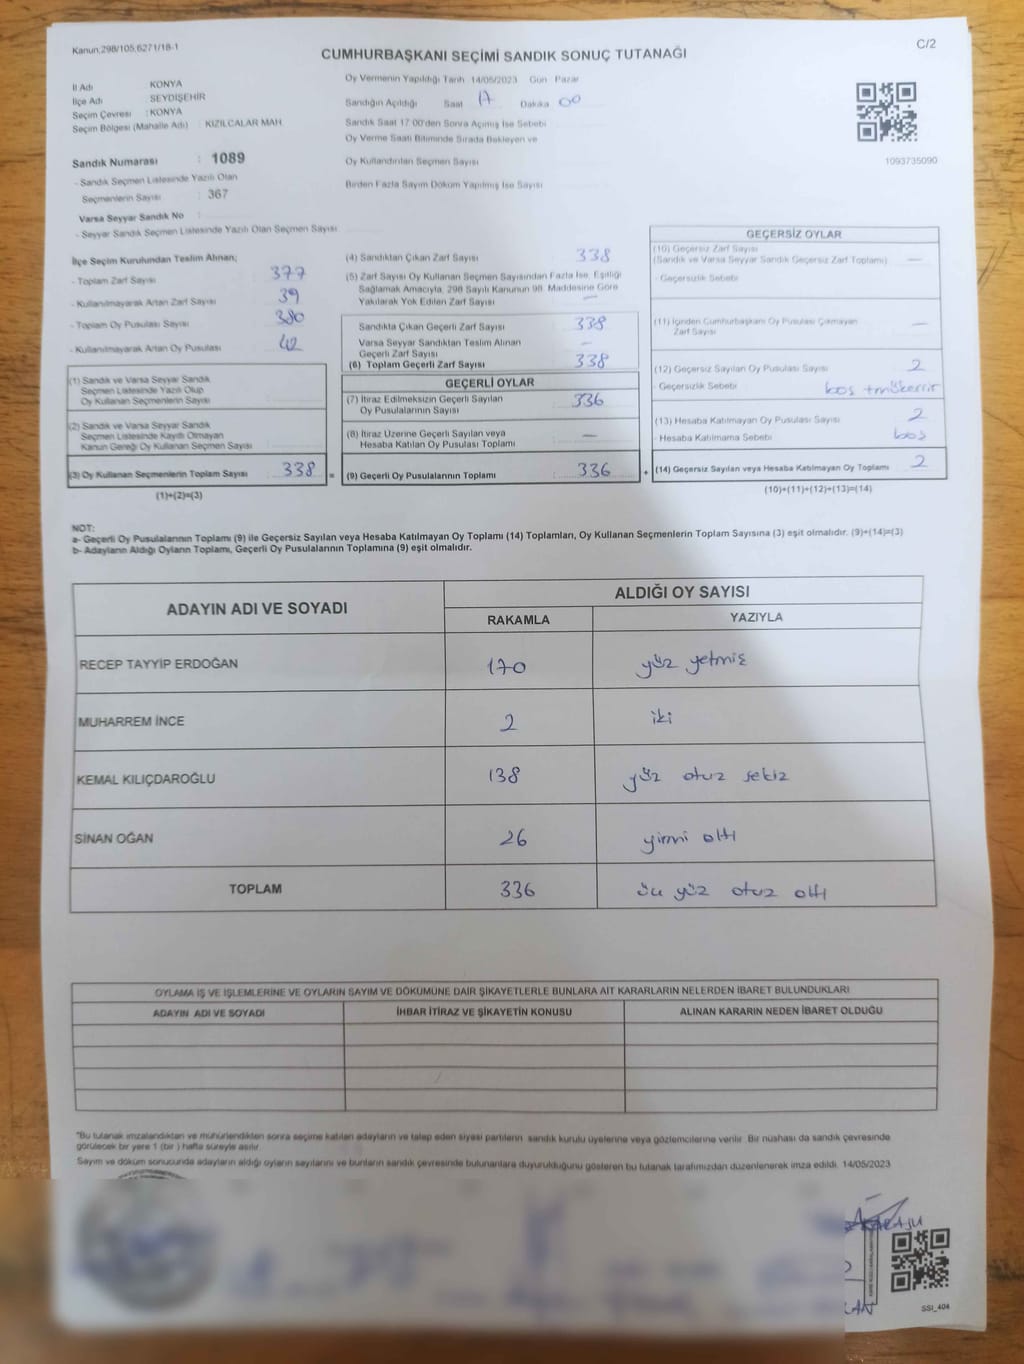 Kanun;298/105;6271/18-1
C/2
CUMHURBAŞKANI SEÇİMİ SANDIK SONUÇ TUTANAĞI
İl Adı : KONYA
İlçe Adı : SEYDİŞEHİR
Seçim Çevresi : KONYA
Seçim Bölgesi (Mahalle Adı) : KIZILCALAR MAH.
Sandık Numarası : 1089
- Sandık Seçmen Listesinde Yazılı Olan
Seçmenlerin Sayısı : 367
Varsa Seyyar Sandık No :
- Seyyar Sandık Seçmen Listesinde Yazılı Olan Seçmen Sayısı
Oy Vermenin Yapıldığı Tarih 14/05/2023 Gün Pazar
Sandığın Açıldığı Saat 17 Dakika 00
Sandık Saat 17:00'den Sonra Açılmış İse Sebebi
Oy Verme Saati Bitiminde Sırada Bekleyen ve
Oy Kullandırılan Seçmen Sayısı
Birden Fazla Sayım Döküm Yapılmış İse Sayısı
1093735090
İlçe Seçim Kurulundan Teslim Alınan;
- Toplam Zarf Sayısı 377
- Kullanılmayarak Artan Zarf Sayısı 39
- Toplam Oy Pusulası Sayısı 380
- Kullanılmayarak Artan Oy Pusulası 42
(1) Sandık ve Varsa Seyyar Sandık
Seçmen Listesinde Yazılı Olup
Oy Kullanan Seçmenlerin Sayısı
(2) Sandık ve Varsa Seyyar Sandık
Seçmen Listesinde Kayıtlı Olmayan
Kanun Gereği Oy Kullanan Seçmen Sayısı
(3) Oy Kullanan Seçmenlerin Toplam Sayısı 338 =
(1)+(2)=(3)
(4) Sandıktan Çıkan Zarf Sayısı 338
(5) Zarf Sayısı Oy Kullanan Seçmen Sayısından Fazla İse, Eşitliği
Sağlamak Amacıyla, 298 Sayılı Kanunun 98. Maddesine Göre
Yakılarak Yok Edilen Zarf Sayısı —
Sandıkta Çıkan Geçerli Zarf Sayısı 338
Varsa Seyyar Sandıktan Teslim Alınan
Geçerli Zarf Sayısı —
(6) Toplam Geçerli Zarf Sayısı 338
GEÇERLİ OYLAR
(7) İtiraz Edilmeksizin Geçerli Sayılan
Oy Pusulalarının Sayısı 336
(8) İtiraz Üzerine Geçerli Sayılan veya
Hesaba Katılan Oy Pusulası Toplamı —
(9) Geçerli Oy Pusulalarının Toplamı 336 +
GEÇERSİZ OYLAR
(10) Geçersiz Zarf Sayısı
(Sandık ve Varsa Seyyar Sandık Geçersiz Zarf Toplamı) —
- Geçersizlik Sebebi
(11) İçinden Cumhurbaşkanı Oy Pusulası Çıkmayan
Zarf Sayısı —
(12) Geçersiz Sayılan Oy Pusulası Sayısı 2
- Geçersizlik Sebebi boş + mükerrir
(13) Hesaba Katılmayan Oy Pusulası Sayısı 2
Hesaba Katılmama Sebebi boş
(14) Geçersiz Sayılan veya Hesaba Katılmayan Oy Toplamı 2
(10)+(11)+(12)+(13)=(14)
NOT:
a- Geçerli Oy Pusulalarının Toplamı (9) ile Geçersiz Sayılan veya Hesaba Katılmayan Oy Toplamı (14) Toplamları, Oy Kullanan Seçmenlerin Toplam Sayısına (3) eşit olmalıdır. (9)+(14)=(3)
b- Adayların Aldığı Oyların Toplamı, Geçerli Oy Pusulalarının Toplamına (9) eşit olmalıdır.
ADAYIN ADI VE SOYADI
ALDIĞI OY SAYISI
RAKAMLA YAZIYLA
RECEP TAYYİP ERDOĞAN 170 yüz yetmiş
MUHARREM İNCE 2 iki
KEMAL KILIÇDAROĞLU 138 yüz otuz sekiz
SİNAN OĞAN 26 yirmi altı
TOPLAM 336 üç yüz otuz altı
OYLAMA İŞ VE İŞLEMLERİNE VE OYLARIN SAYIM VE DÖKÜMÜNE DAİR ŞİKAYETLERLE BUNLARA AİT KARARLARIN NELERDEN İBARET BULUNDUKLARI
ADAYIN ADI VE SOYADI İHBAR İTİRAZ VE ŞİKAYETİN KONUSU ALINAN KARARIN NEDEN İBARET OLDUĞU
*Bu tutanak imzalandıktan ve mühürlendikten sonra seçime katılan adayların ve talep eden siyasi partilerin sandık kurulu üyelerine veya gözlemcilerine verilir. Bir nüshası da sandık çevresinde
görülecek bir yere 1 (bir ) hafta süreyle asılır.
Sayım ve döküm sonucunda adayların aldığı oyların sayılarını ve bunların sandık çevresinde bulunanlara duyurulduğunu gösteren bu tutanak tarafımızdan düzenlenerek imza edildi. 14/05/2023
SSI_404